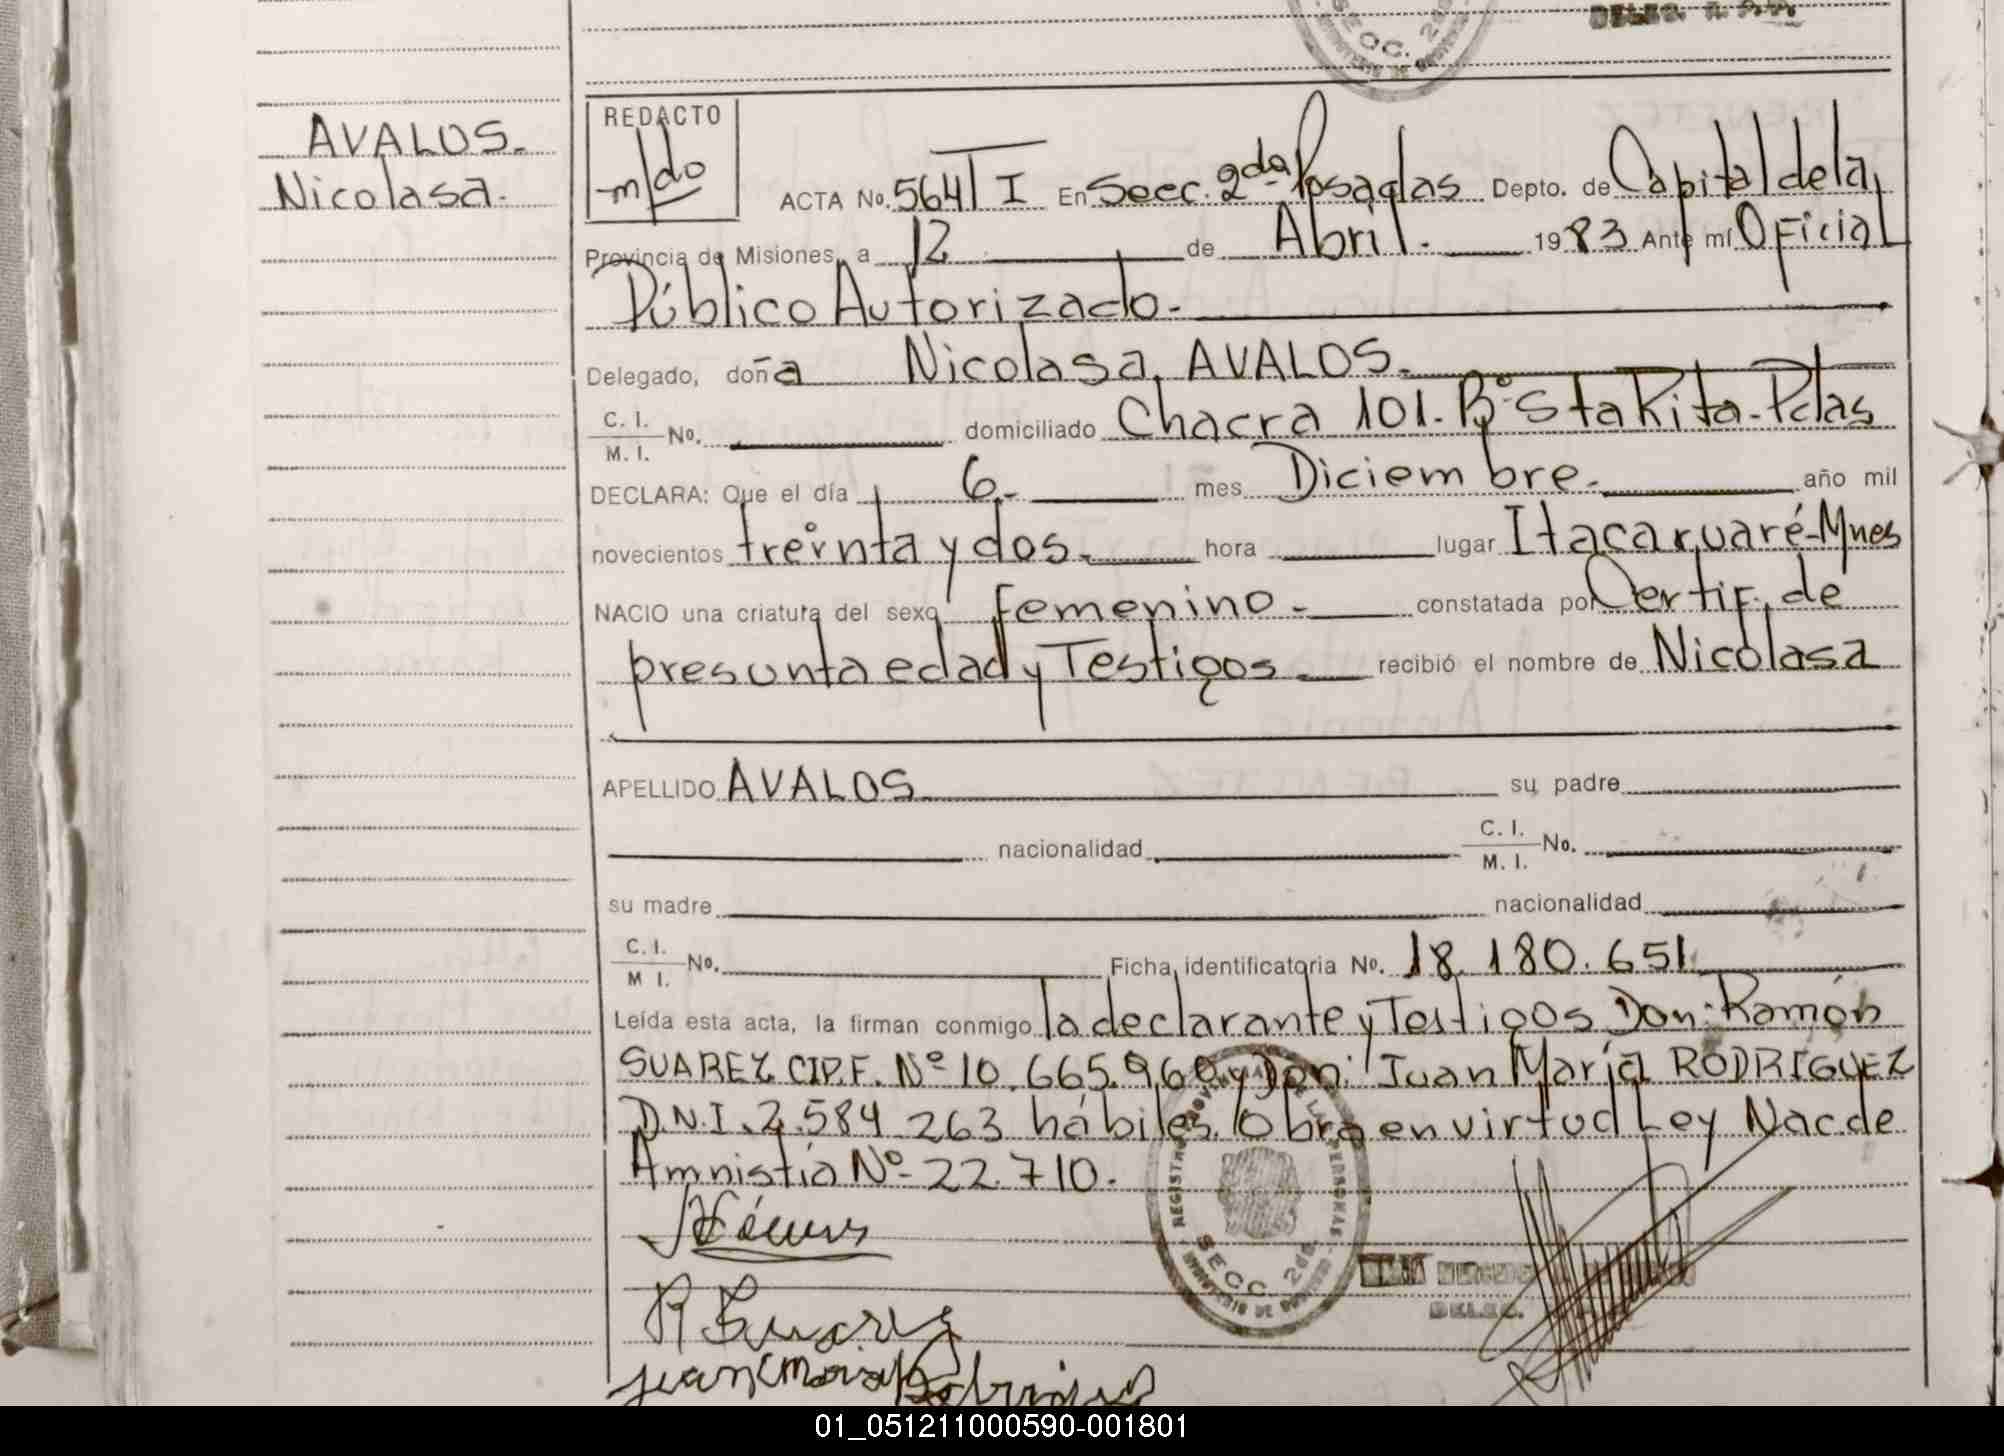 SECC. 2da
DELEG. R. P. P.
AVALOS.
Nicolasa.
REDACTO
m/do
ACTA No. 564 T I En Secc. 2da Posadas Depto. de Capital de la
Provincia de Misiones, a 12 de Abril. 1983 Ante mí Oficial
Público Autorizado.
Delegado, doña Nicolasa, AVALOS.
C. I.
M. I. No. domiciliado Chacra 101. Bº Sta Rita-Pdas
DECLARA: Que el día 6. mes Diciembre. año mil
novecientos treinta y dos. hora lugar Itacaruaré-Mnes
NACIO una criatura del sexo femenino. constatada por Certif. de
presunta edad y Testigos recibió el nombre de Nicolasa
APELLIDO AVALOS su padre
nacionalidad C. I.
M. I. No.
su madre nacionalidad
C. I.
M I. No. Ficha identificatoria No. 18.180.651.
Leída esta acta, la firman conmigo la declarante y Testigos Don: Ramón
SUAREZ CIP.F. Nº 10.665.960 y Don: Juan María RODRIGUEZ
D.N.I. 2.584.263 hábiles. Obra en virtud Ley Nac. de
Amnistía Nº 22.710.
REGISTRO PROVINCIAL DE LAS PERSONAS
SECC. 2da.
R Suarez
Juan Maria Rodriguez
DELEG.
01_051211000590-001801